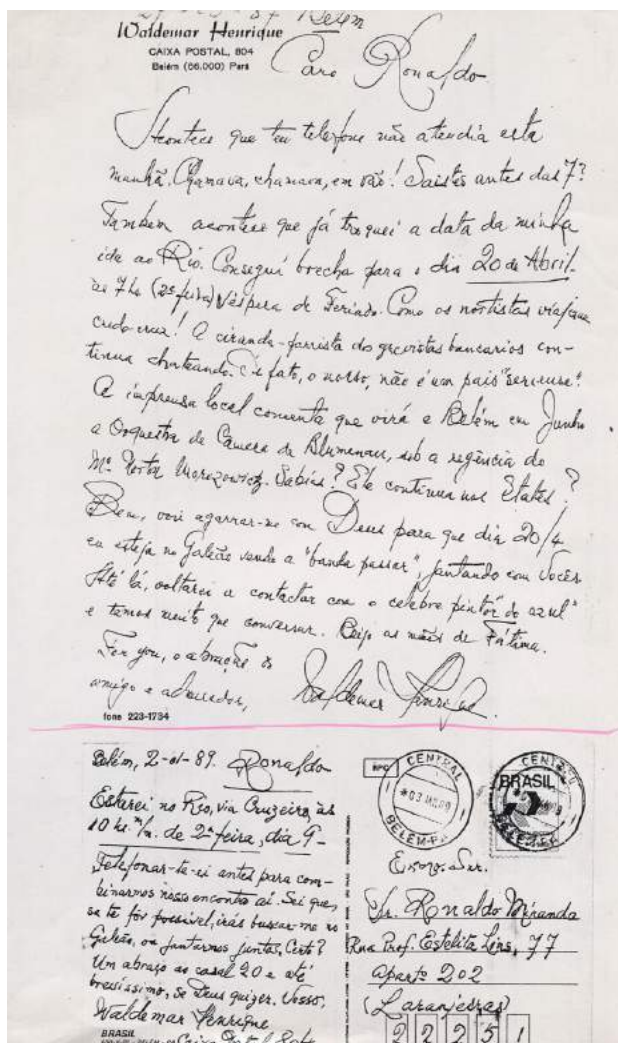 87 Belém
Waldemar Henrique
CAIXA POSTAL, 804
Belém (66.000) Pará
Caro Ronaldo
Acontece que teu telefone não atendia esta
manhã. Chamava, chamava, em vão! Saistes antes das 7?
Tambem acontece que já troquei a data da minha
ida ao Rio. Consegui brecha para o dia 20 de Abril
às 7hs (2ª feira) Véspera de Feriado. Como os nortistas viajam
cruz! A ciranda-farrista do grevistas bancarios con-
tinua chateando. De fato, o nosso, não é um país "serieuse".
A imprensa local comenta que virá a Belém em Junho
a Orquestra de Câmera de Blumenau, sob a regência do
Mº Norton Morozowicz. Sabias? Ele continua nos States?
Bem, vou agarrar-me com Deus para que dia 20/4
eu esteja no Galeão vendo a "banda passar", jantando com Vocês
Até lá, voltarei a contactar com o celebre "pintor do azul"
e temos muito que conversar. Beijo as mãos de Fátima.
For you, o abração do
amigo e admirador, Waldemar Henrique
fone 223-1734
Belém, 2-01-89. Ronaldo
Estarei no Rio, via Cruzeiro, às
10 hs. m/m. de 2ª feira, dia 9-
Telefonar-te-ei antes para com-
binarmos nosso encontro aí. Sei que,
se te fôr possivel, irás buscar-me no
Galeão, ou jantarmos juntos, Certo?
Um abraço ao casal 20 e até
brevissimo, se Deus quizer. Vosso,
Waldemar Henrique
BRASIL
Caixa Postal 804
RPC
CENTRAL
BELÉM-PA
CENTRAL
BRASIL
BELÉM-PA
Exmo. Snr.
Sr. Ronaldo Miranda
Rua Prof. Estelita Lins, 77
Apartº 202
(Laranjeiras)
2 2 2 5 1